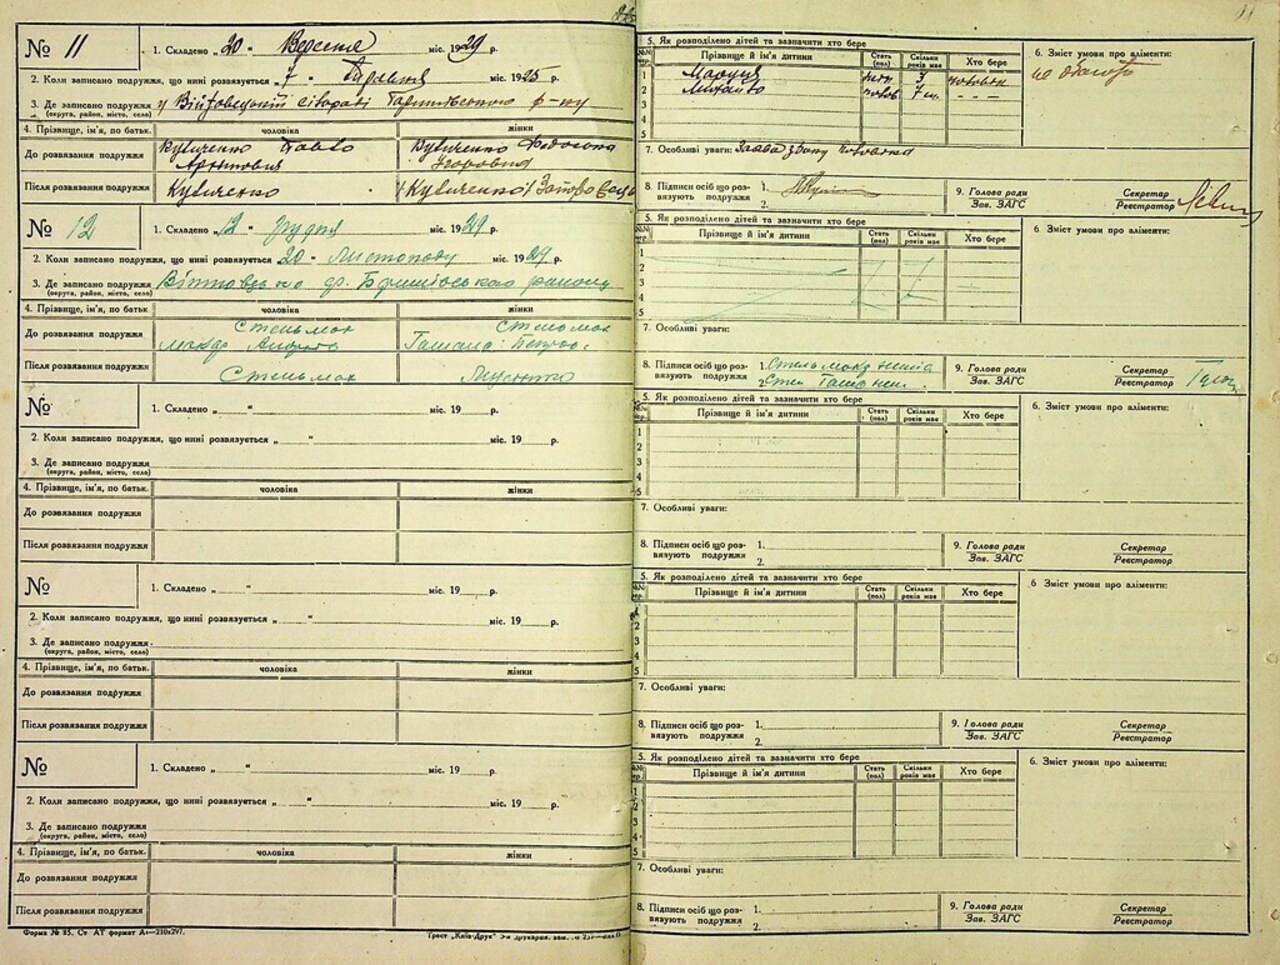 № 11
1. Складено „20" Вересня міс. 1929 р.
2. Коли записано подружжя, що нині розвязується „7" Травня міс. 1925 р.
3. Де записано подружжя у сільраді р-ну
(округа, район, місто, село)
4. Прізвище, ім'я, по батьк. чоловіка жінки
До розвязання подружжя Кувиченко Павло Кувиченко Федосія
Після розвязання подружжя Кувиченко (Кувиченко)
5. Як розподілено дітей та зазначити хто бере
№№ пор. Прізвище й ім'я дитини Стать (пол) Скільки років має Хто бере
1 Маруся жін. 3 чоловік
2 Михайло чолов. 7 м. - - -
3
4
5
6. Зміст умови про аліменти:
не
7. Особливі уваги: Заява з боку чоловіка
8. Підписи осіб що розвязують подружжя 1.
2.
9. Голова ради
Зав. ЗАГС
Секретар
Реєстратор
№ 12
1. Складено „12" грудня міс. 1929 р.
2. Коли записано подружжя, що нині розвязується „20" Листопаду міс. 1929 р.
3. Де записано подружжя району
(округа, район, місто, село)
4. Прізвище, ім'я, по батьк. чоловіка жінки
До розвязання подружжя Стельмах Стельмах
Макар Андр. Татяна Петров.
Після розвязання подружжя Стельмах Лисенко
5. Як розподілено дітей та зазначити хто бере
№№ пор. Прізвище й ім'я дитини Стать (пол) Скільки років має Хто бере
1
2
3
4
5
6. Зміст умови про аліменти:
7. Особливі уваги:
8. Підписи осіб що розвязують подружжя 1. Стельмах
2.
9. Голова ради
Зав. ЗАГС
Секретар
Реєстратор
№
1. Складено „ " міс. 19 р.
2. Коли записано подружжя, що нині розвязується „ " міс. 19 р.
3. Де записано подружжя
(округа, район, місто, село)
4. Прізвище, ім'я, по батьк. чоловіка жінки
До розвязання подружжя
Після розвязання подружжя
5. Як розподілено дітей та зазначити хто бере
№№ пор. Прізвище й ім'я дитини Стать (пол) Скільки років має Хто бере
1
2
3
4
5
6. Зміст умови про аліменти:
7. Особливі уваги:
8. Підписи осіб що розвязують подружжя 1.
2.
9. Голова ради
Зав. ЗАГС
Секретар
Реєстратор
№
1. Складено „ " міс. 19 р.
2. Коли записано подружжя, що нині розвязується „ " міс. 19 р.
3. Де записано подружжя
(округа, район, місто, село)
4. Прізвище, ім'я, по батьк. чоловіка жінки
До розвязання подружжя
Після розвязання подружжя
5. Як розподілено дітей та зазначити хто бере
№№ пор. Прізвище й ім'я дитини Стать (пол) Скільки років має Хто бере
1
2
3
4
5
6 Зміст умови про аліменти:
7. Особливі уваги:
8. Підписи осіб що розвязують подружжя 1.
2.
9. Голова ради
Зав. ЗАГС
Секретар
Реєстратор
№
1. Складено „ " міс. 19 р.
2. Коли записано подружжя, що нині розвязується „ " міс. 19 р.
3. Де записано подружжя
(округа, район, місто, село)
4. Прізвище, ім'я, по батьк. чоловіка жінки
До розвязання подружжя
Після розвязання подружжя
5. Як розподілено дітей та зазначити хто бере
№№ пор. Прізвище й ім'я дитини Стать (пол) Скільки років має Хто бере
1
2
3
4
5
6. Зміст умови про аліменти:
7. Особливі уваги:
8. Підписи осіб що розвязують подружжя 1.
2.
9. Голова ради
Зав. ЗАГС
Секретар
Реєстратор
Форма № 85. Ст АТ формат А4—210x297.
Трест „Київ-Друк"